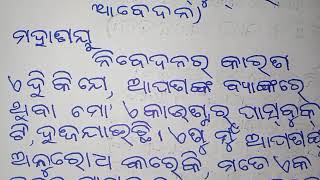 ଆବେଦନ)
ମହାଶୟ
ନିବେଦନର କାରଣ
ଏହିକି ଯେ, ଆପଣଙ୍କ ବ୍ୟାଙ୍କରେ
ଥିବା ମୋ' ଏକାଉଣ୍ଟର ପାସ୍‌ବୁକ୍
ଟି, ହଜିଯାଇଛି । ଏଣୁ ମୁଁ ଆପଣଙ୍କୁ
ଅନୁରୋଧ କରେକି, ମତେ ଏକ